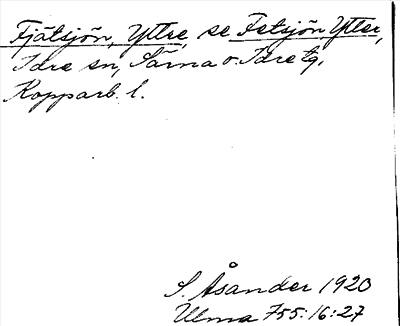 Fjätsjön, Yttre, se Fetsjön Ytter,
Idre sn, Särna o. Idre tg.
Kopparb. l.
S. Åsander 1920
Ulma 755:16:27